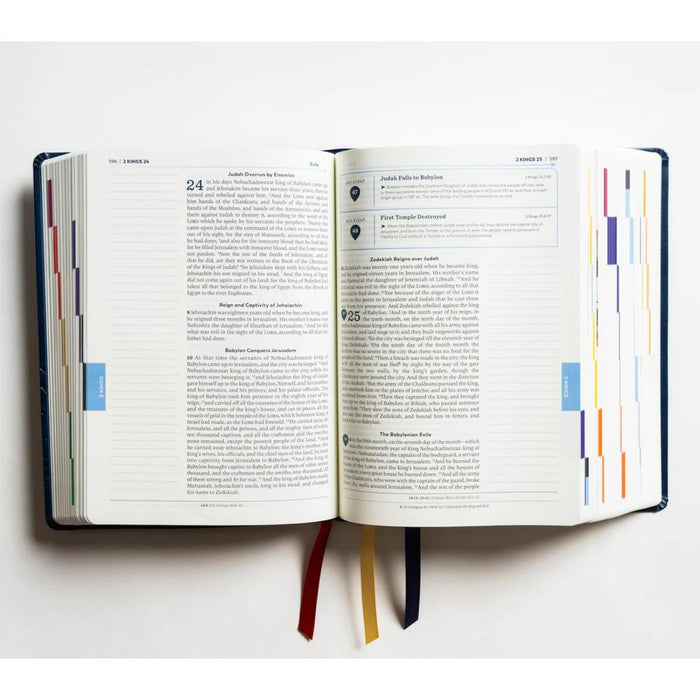 596 | 2 KINGS 24
Exile
Judah Overrun by Enemies
24 In his days Nebuchadnezzar king of Babylon came up,
and Jehoiakim became his servant three years; then he
turned and rebelled against him. And the LORD sent against
him bands of the Chaldeans, and bands of the Syrians, and
bands of the Moabites, and bands of the Ammonites, and sent
them against Judah to destroy it, according to the word of the
LORD which he spoke by his servants the prophets. Surely this
came upon Judah at the command of the LORD, to remove them
out of his sight, for the sins of Manasseh, according to all that
he had done, and also for the innocent blood that he had shed;
for he filled Jerusalem with innocent blood, and the LORD would
not pardon. Now the rest of the deeds of Jehoiakim, and all
that he did, are they not written in the Book of the Chronicles
of the Kings of Judah? So Jehoiakim slept with his fathers, and
Jehoiachin his son reigned in his stead. And the king of Egypt
did not come again out of his land, for the king of Babylon had
taken all that belonged to the king of Egypt from the Brook of
Egypt to the river Euphrates.
Reign and Captivity of Jehoiachin
Jehoiachin was eighteen years old when he became king, and
he reigned three months in Jerusalem. His mother's name was
Nehushta the daughter of Elnathan of Jerusalem. And he did
what was evil in the sight of the LORD, according to all that his
father had done.
Babylon Conquers Jerusalem
10 At that time the servants of Nebuchadnezzar king of
Babylon came up to Jerusalem, and the city was besieged. And
Nebuchadnezzar king of Babylon came to the city, while his
servants were besieging it; and Jehoiachin the king of Judah
gave himself up to the king of Babylon, himself, and his mother,
and his servants, and his princes, and his palace officials. The
king of Babylon took him prisoner in the eighth year of his
reign, and carried off all the treasures of the house of the LORD,
and the treasures of the king's house, and cut in pieces all the
vessels of gold in the temple of the LORD, which Solomon king of
Israel had made, as the LORD had foretold. He carried away all
Jerusalem, and all the princes, and all the mighty men of valor,
ten thousand captives, and all the craftsmen and the smiths;
none remained, except the poorest people of the land. And
he carried away Jehoiachin to Babylon; the king's mother, the
king's wives, his officials, and the chief men of the land, he took
into captivity from Jerusalem to Babylon. And the king of
Babylon brought captive to Babylon all the men of valor, seven
thousand, and the craftsmen and the smiths, one thousand, all
of them strong and fit for war. And the king of Babylon made
Mattaniah, Jehoiachin's uncle, king in his stead, and changed
his name to Zedekiah.
2 KINGS
2 KINGS 25 | 597
KEY EVENT
47
Judah Falls to Babylon
2 Kings
KEY EVENT
48
First Temple Destroyed
2 Kings
Zedekiah Reigns over Judah
Zedekiah was twenty-one years old when he became king,
and he reigned eleven years in Jerusalem. His mother's name
was Hamutal the daughter of Jeremiah of Libnah. And he
did what was evil in the sight of the LORD, according to all that
Jehoiakim had done. For because of the anger of the LORD it
came to the point in Jerusalem and Judah that he cast them
out from his presence. And Zedekiah rebelled against the king
25 of Babylon. And in the ninth year of his reign, in
the tenth month, on the tenth day of the month,
Nebuchadnezzar king of Babylon came with all his army against
Jerusalem, and laid siege to it; and they built siegeworks against
it round about. So the city was besieged till the eleventh year of
King Zedekiah. On the ninth day of the fourth month the
famine was so severe in the city that there was no food for the
people of the land. Then a breach was made in the city; the king
with all the men of war fled by night by the way of the gate
between the two walls, by the king's garden, though the
Chaldeans were around the city. And they went in the direction
of the Arabah. But the army of the Chaldeans pursued the king,
and overtook him in the plains of Jericho; and all his army was
scattered from him. Then they captured the king, and brought
him up to the king of Babylon at Riblah, who passed sentence
upon him. They slew the sons of Zedekiah before his eyes, and
put out the eyes of Zedekiah, and bound him in fetters, and
took him to Babylon.
The Babylonian Exile
In the fifth month, on the seventh day of the month—which
was the nineteenth year of King Nebuchadnezzar, king
of Babylon—Nebuzaradan, the captain of the bodyguard, a servant
of the king of Babylon, came to Jerusalem. And he burned the
house of the LORD, and the king's house and all the houses of
Jerusalem; every great house he burned down. And all the army
of the Chaldeans, who were with the captain of the guard, broke
down the walls around Jerusalem. And the rest of the people
2 KINGS